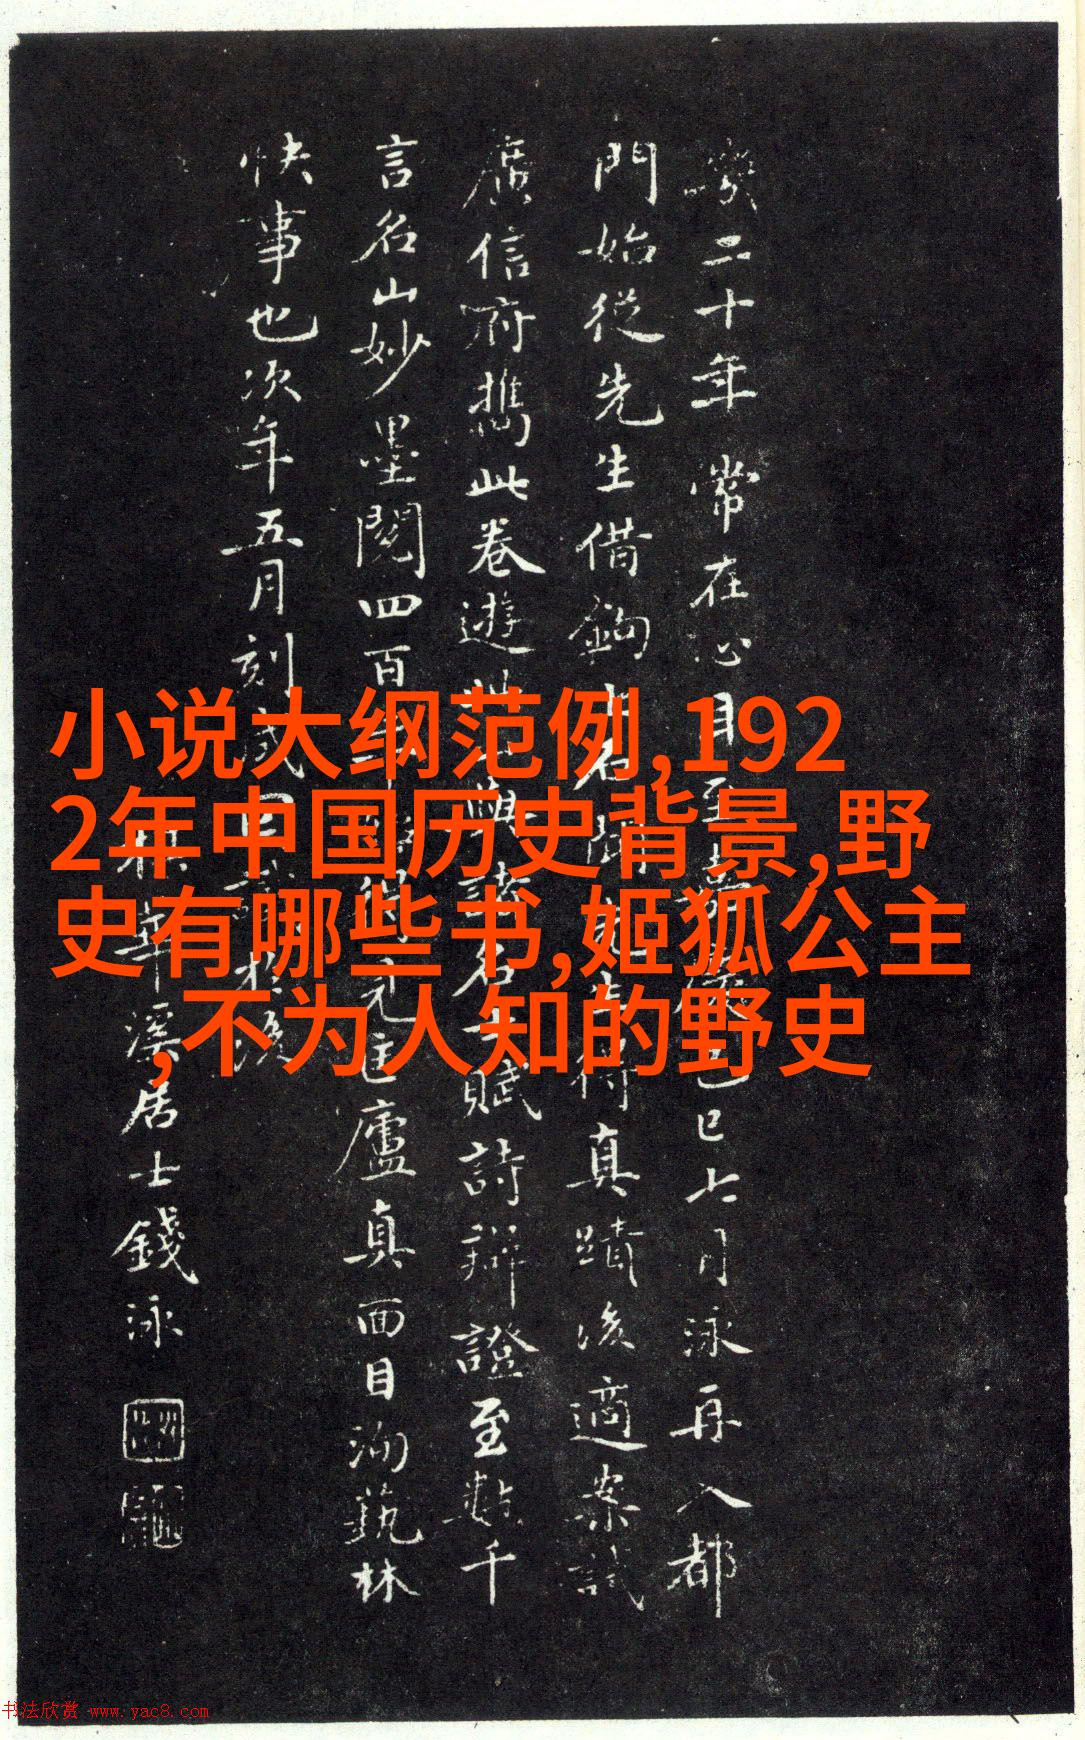 小说大纲范例,192
2年中国历史背景,野
史有哪些书,姬狐公主
,不为人知的野史
二十年常在心目至
巳七月泳再入都
門始從先生借鉤
得真蹟後適案試
廣信府攜此卷遊
賦詩辯證至數千
言名山妙墨閱四百
匡廬真面目洵藝林
快事也次年五月刻成
溪居士錢泳
书法欣赏 www.yac8.com